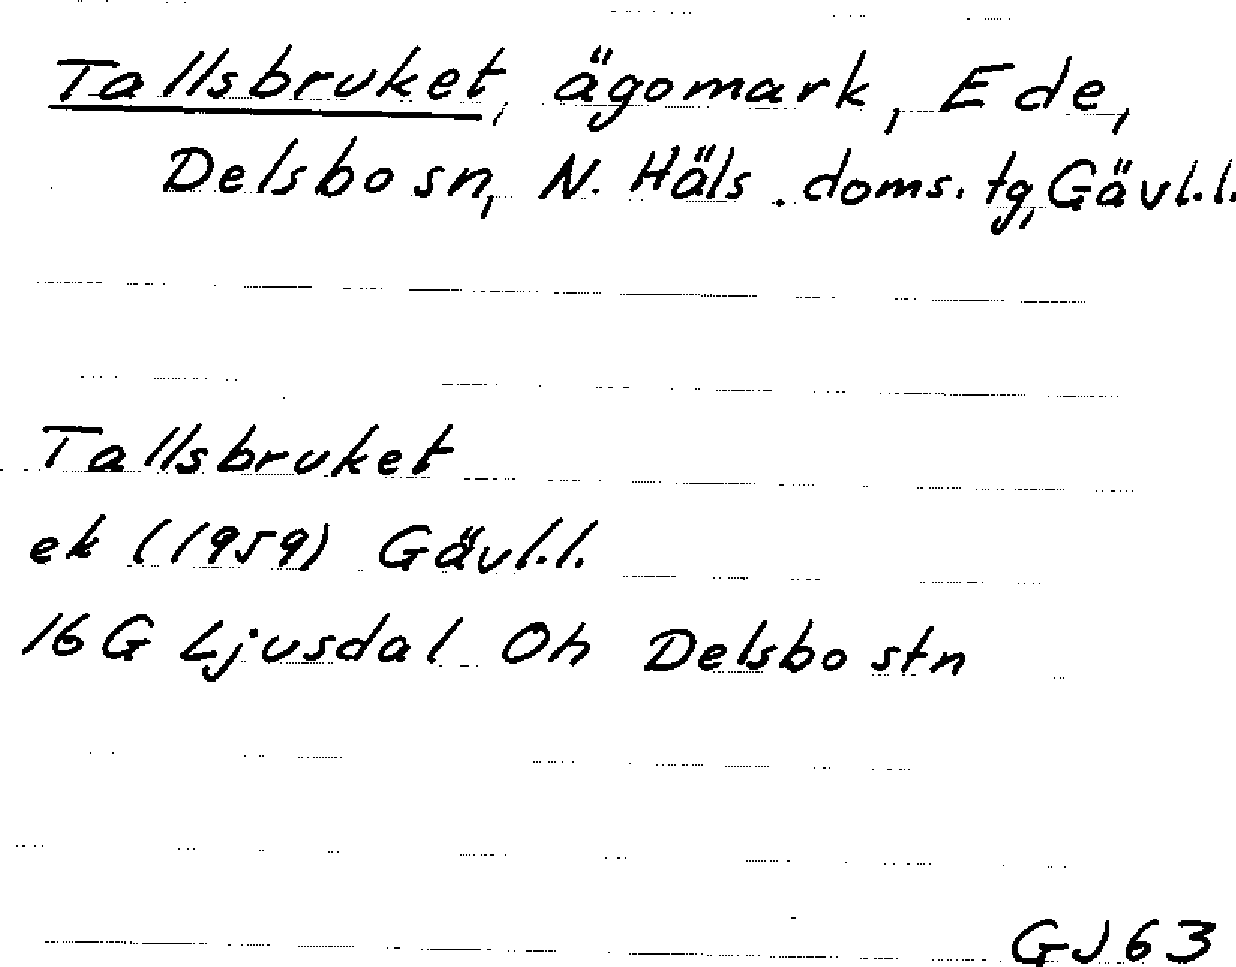 Tallsbruket, ägomark, Ede,
Delsbo sn, N. Häls. doms. tg, Gävl.l.
Tallsbruket
ek (1959) Gävl.l.
16G Ljusdal Oh Delsbo stn
GJ 63